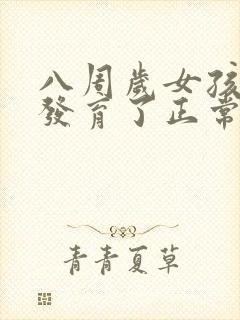 八周歲女孩
發育了正常
青青夏草